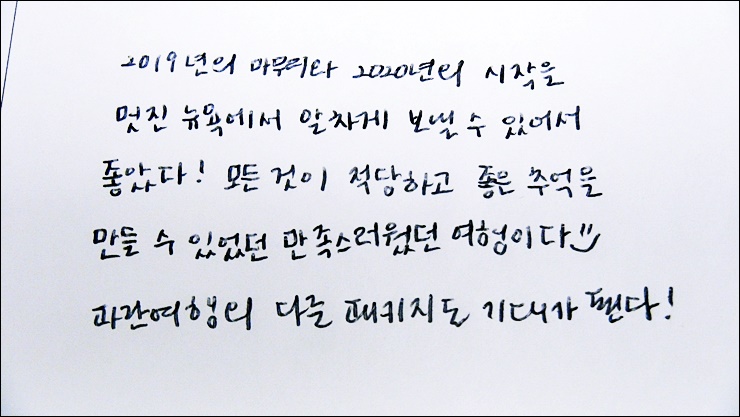 2019년의 마무리와 2020년의 시작을
멋진 뉴욕에서 알차게 보낼 수 있어서
좋았다! 모든 것이 적당하고 좋은 추억을
만들 수 있었던 만족스러웠던 여행이다
파란여행의 다른 패키지도 기대가 된다!